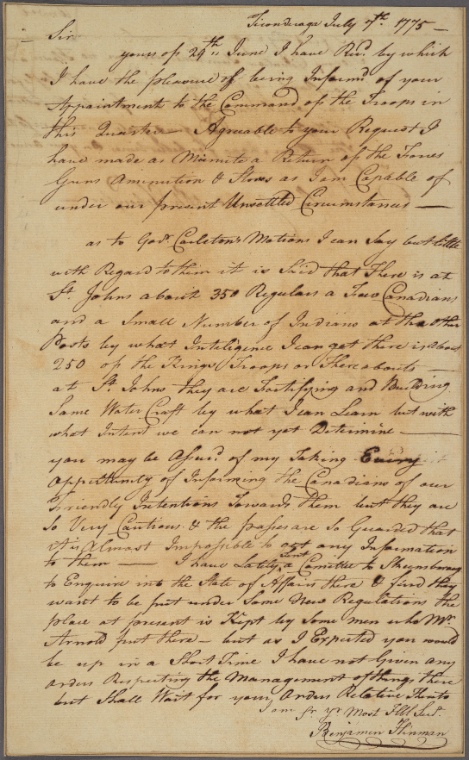 Ticonderoga July 7th. 1775 —
Sir
yours of 29th. June I have Recd. by which
I have the pleasure of being Informd of your
Appointment to the Command of the Troops in
this Quarter — Agreable to your Request I
have made as Minute a Return of the Forces
Guns Amunition & Stores as I am Capable of
under our present Unsettled Circumstances —
as to Govr. Carleton's Motions I can Say but little
with Regard to them it is Said that There is at
St. Johns about 350 Regulars a Few Canadians
and a Small Number of Indians at the other
Posts by what Intelligence I can get there is about
250 of the Kings Troops or There abouts —
at St. Johns they are Fortifying and Building
Some Water Craft by what I can Learn but with
what Intent we can not yet Determine —
you may be Assurd of my Taking Every
Appertunity of Informing the Canadians of our
Friendly Intentions Towards Them but they are
So Very Cautious & the passes are So Guarded that
it is Almost Impossible to get any Information
to them — I have Lately Sent a Comittee to Skeensborough
to Enquire into the State of Affairs there & find they
want to be put under Some New Regulations the
place at present is Kept by Some men who Mr.
Arnold put there — but as I Expected you would
be up in a Short Time I have not Given any
orders Respecting the Management of things there
but Shall Wait for your Orders Relative Thereto
I am Sr. yr. Most Hbl Sert.
Benjamin Hinman